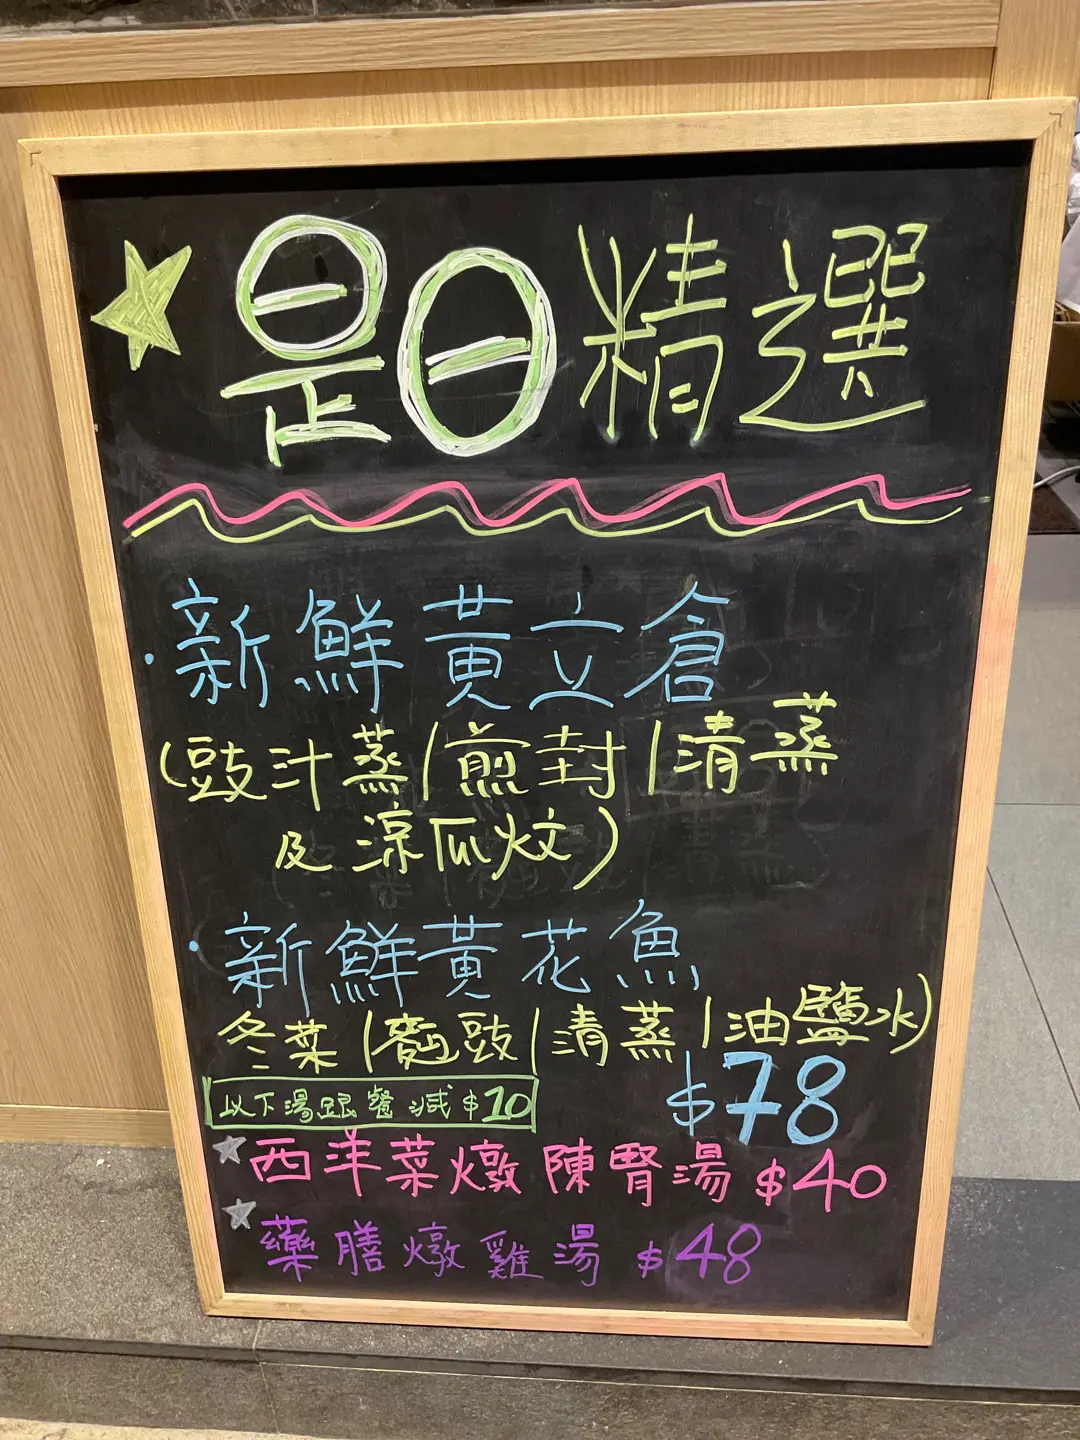 是日精選
新鮮黃立倉
(豉汁蒸/煎封/清蒸
及涼瓜炆)
新鮮黃花魚
冬菜/麵豉/清蒸/油鹽水)
$78
以下湯跟餐減$10
西洋菜燉陳腎湯$40
藥膳燉雞湯$48